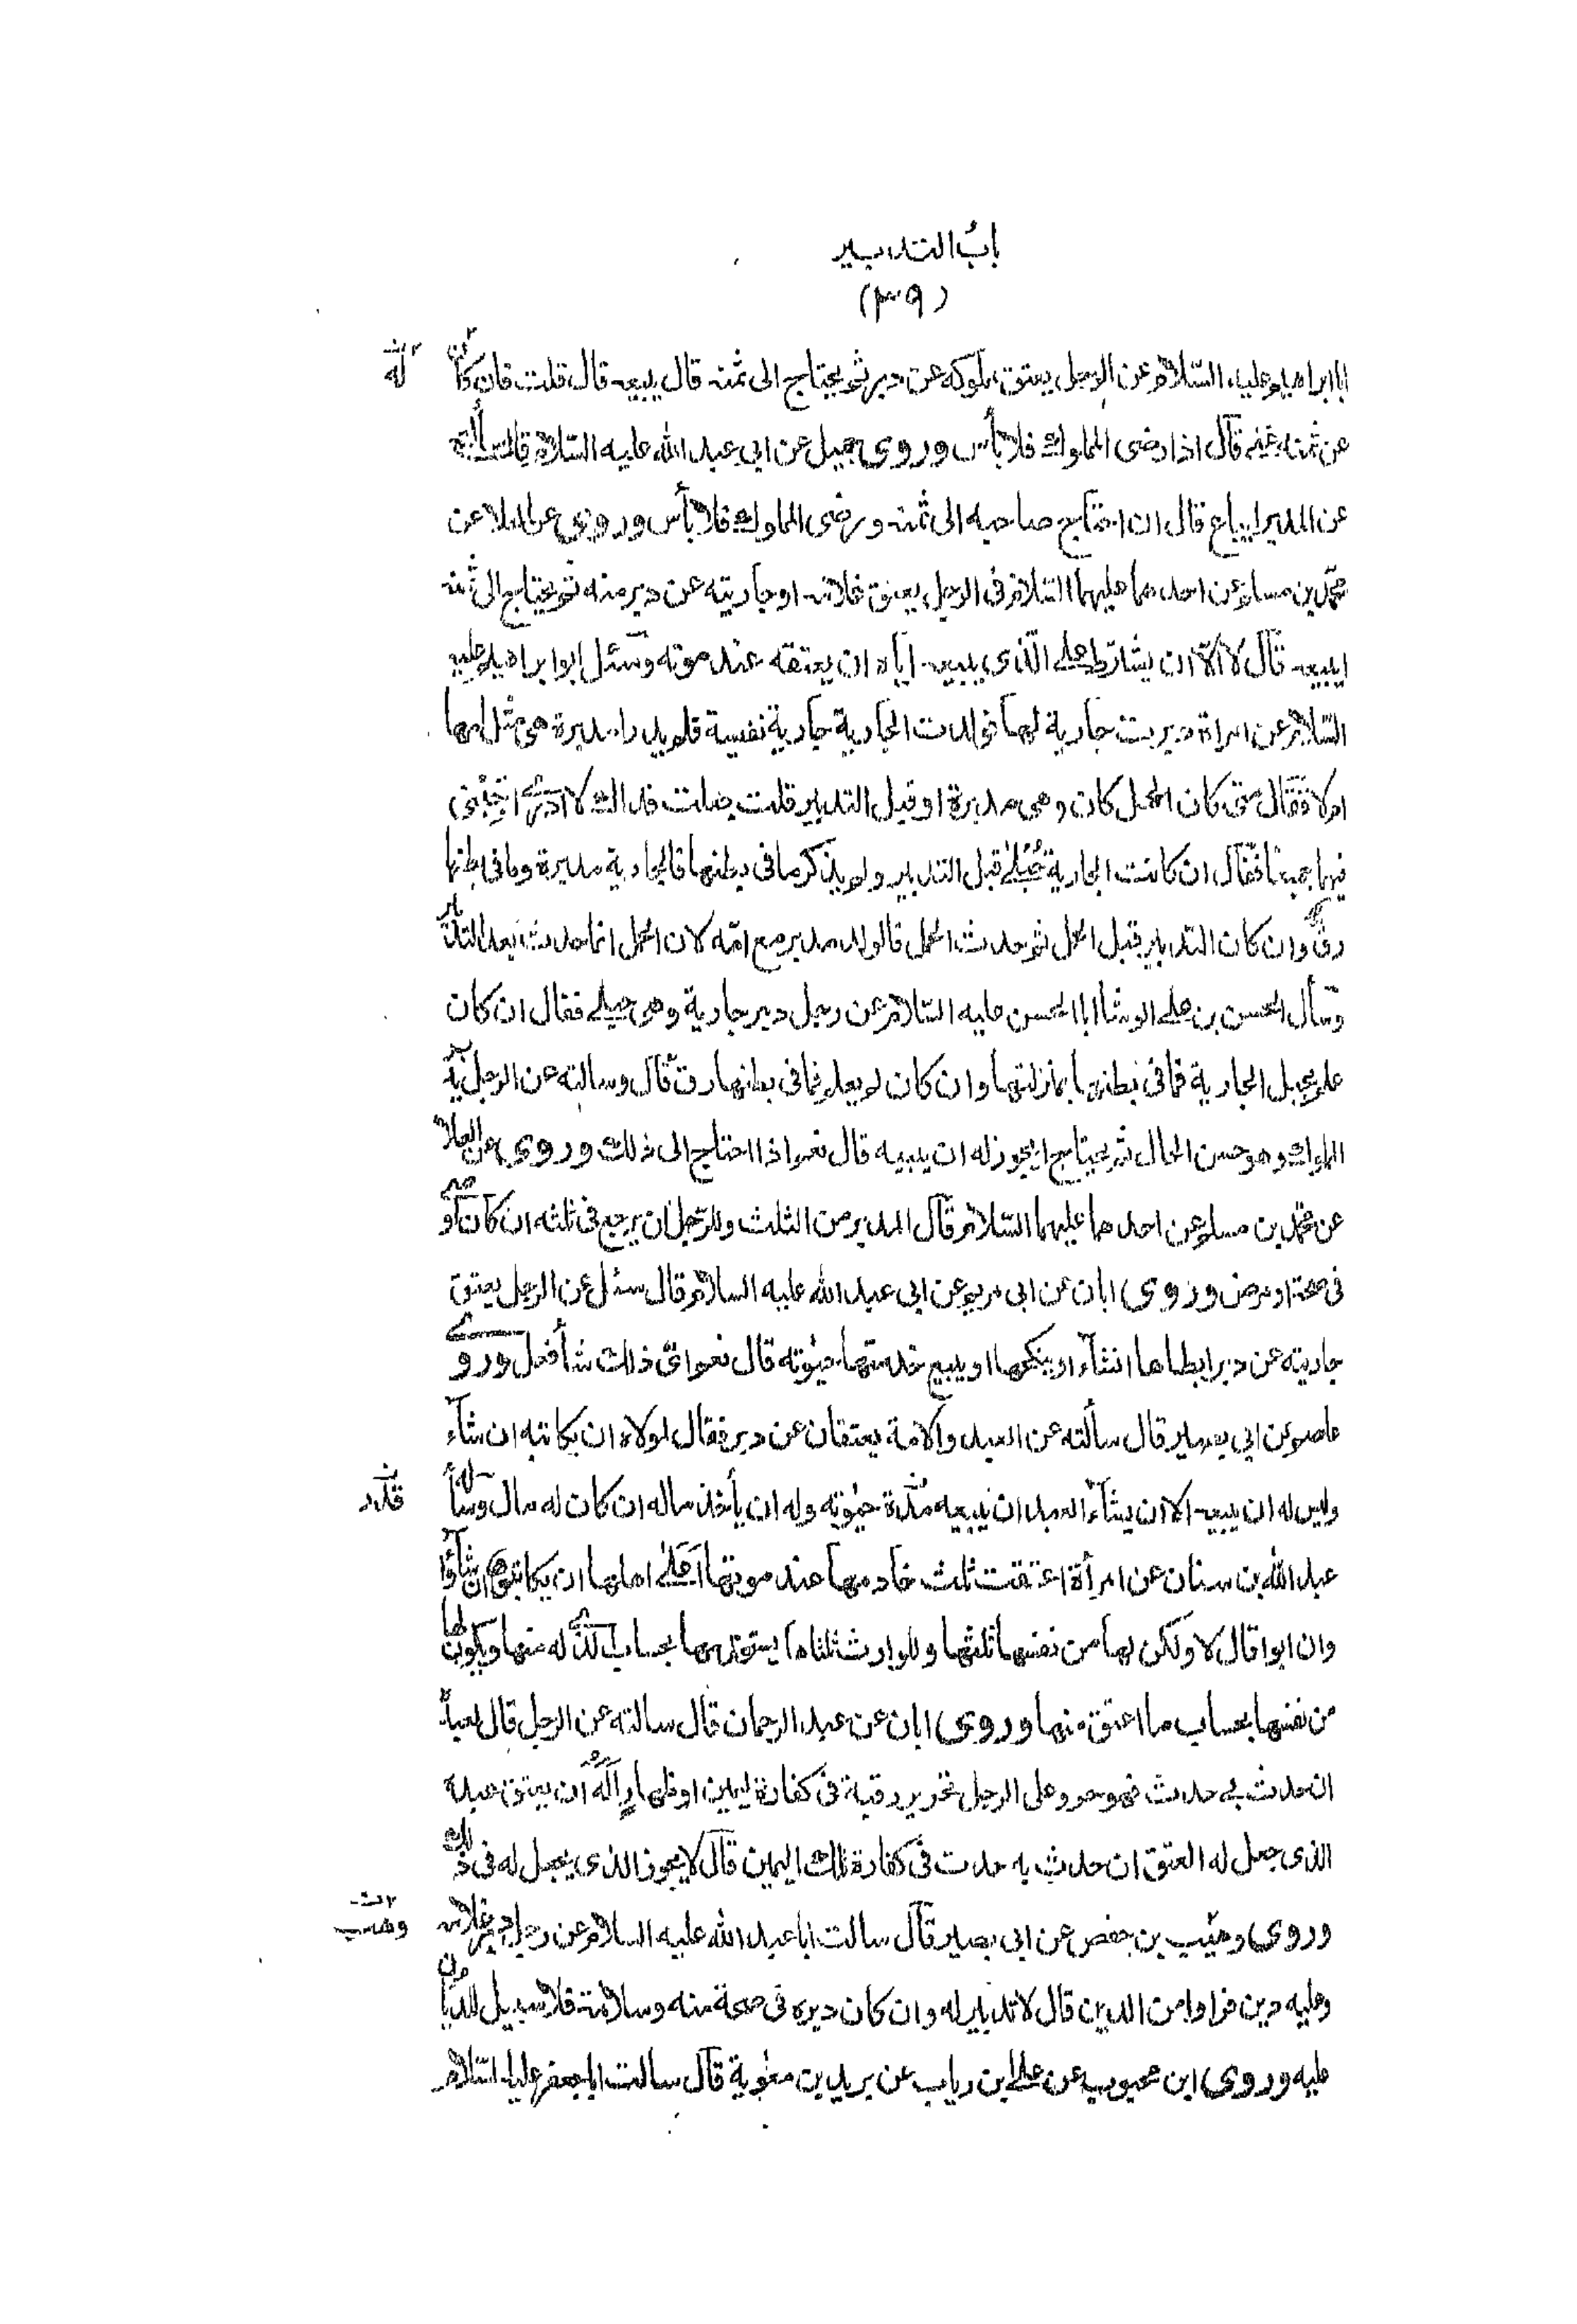 باب التدبير
(٣٩)
ابا ابراهيم عليه السّلام عن الرجل يعتق مملوكه عن دبر ثم يحتاج الى ثمنه قال يبيعه قال قلت فان كان
له
عن ثمنه غنى قال اذا رضى المملوك فلا بأس وروى جميل عن ابى عبد الله عليه السّلام قال سألته
عن المدبر ايباع قال ان احتاج صاحبه الى ثمنه ورضى المملوك فلا بأس وروى عن العلا عن
محمّد بن مسلم عن احدهما عليهما السّلام فى الرجل يعتق غلامه او جاريته عن دبر منه ثم يحتاج الى ثمنه
ايبيعه قال لا الّا ان يشترط على الّذى يبيعه اياه ان يعتقه عند موته وسئل ابو ابراهيم عليه
السّلام عن امرأة دبرت جارية لها فولدت الجارية جارية نفيسة فلم يدرا مدبرة هى مثل امها
ام لا فقال متى كان الحمل كان وهى مدبرة او قبل التدبير قلت جعلت فداك لا ادرى اجبنى
فيهما جميعا فقال ان كانت الجارية حبلى قبل التدبير ولم يذكر ما فى بطنها فالجارية مدبرة وما فى بطنها
رق وان كان التدبير قبل الحمل ثم حدث الحمل فالولد مدبر مع امّه لان الحمل انما حدث بعد التدبير
وسأل الحسن بن على الوشا ابا الحسن عليه السّلام عن رجل دبر جارية وهى حبلى فقال ان كان
علم بحبل الجارية فما فى بطنها بمنزلتها وان كان لم يعلم فما فى بطنها رق قال وسالته عن الرجل يدبر
المملوك وهو حسن الحال ثم يحتاج ايجوز له ان يبيعه قال نعم اذا احتاج الى ذلك وروى عن العلا
عن محمّد بن مسلم عن احدهما عليهما السّلام قال المدبر من الثلث وللرّجل ان يرجع فى ثلثه ان كان اوصى
فى صحة او مرض وروى ابان عن ابى مريم عن ابى عبد الله عليه السلام قال سئل عن الرجل يعتق
جاريته عن دبر ايطاها انشاء او ينكحها او يبيع خدمتها حيوته قال نعم اىّ ذلك شأ فعل وروى
عاصم عن ابى بصير قال سألته عن العبد والامة يعتقان عن دبر فقال لمولاه ان يكاتبه ان شاء
وليس له ان يبيعه الا ان يشاء العبد ان يبيعه مدّة حيوته وله ان يأخذ ماله ان كان له مال وسأله
قدر
عبد الله بن سنان عن امرأة اعتقت ثلث خادمها عند موتها اعلى اهلها ان يكاتبوها ان شاؤا
وان ابوا قال لا ولكن لها من نفسها ثلثها وللوارث ثلثاها يستخدمها بحساب الذى له منها ويكون لها
من نفسها بحساب ما اعتق منها وروى ابان عن عبد الرحمان قال سالته عن الرجل قال لعبده
ان حدث بى حدث فهو حر وعلى الرجل تحرير رقبة فى كفارة يمين او ظهار اله ان يعتق عبده
الذى جعل له العتق ان حدث به حدث فى كفارة تلك اليمين قال لا يجوز الذى يجعل له فى ذلك
وروى وهيب بن حفص عن ابى بصير قال سالت ابا عبد الله عليه السلام عن رجل دبر غلامه
وهب
وعليه دين فرارا من الدين قال لا تدبير له وان كان دبره فى صحة منه وسلامة فلا سبيل للديان
عليه وروى ابن محبوب عن على بن رياب عن بريد بن معوية قال سالت ابا جعفر عليه السّلام